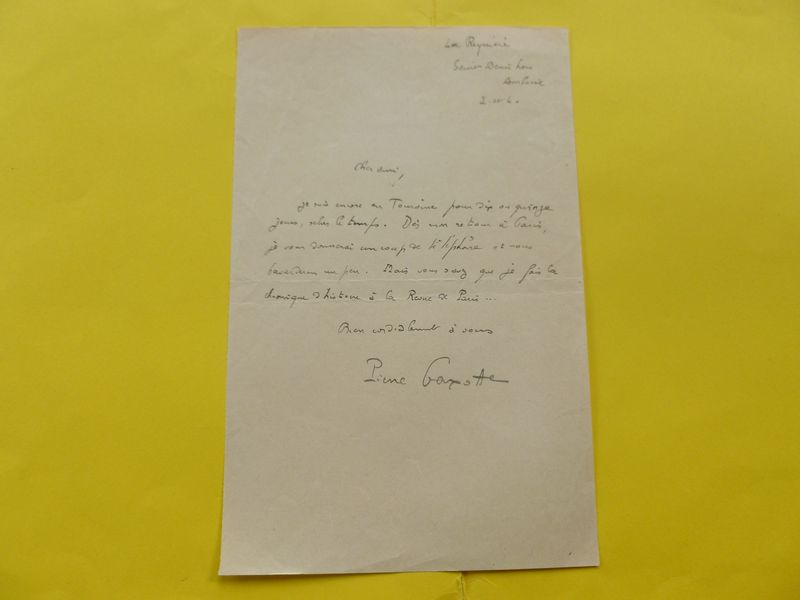 La Reynière
Cher ami,
je suis encore en Touraine pour dix ou quinze
jours, selon le temps. Dès mon retour à Paris,
je vous donnerai un coup de téléphone et nous
bavarderons un peu. Mais vous savez que je fais la
chronique d'histoire à la Revue de Paris...
Bien cordialement à vous
Pierre Gaxotte